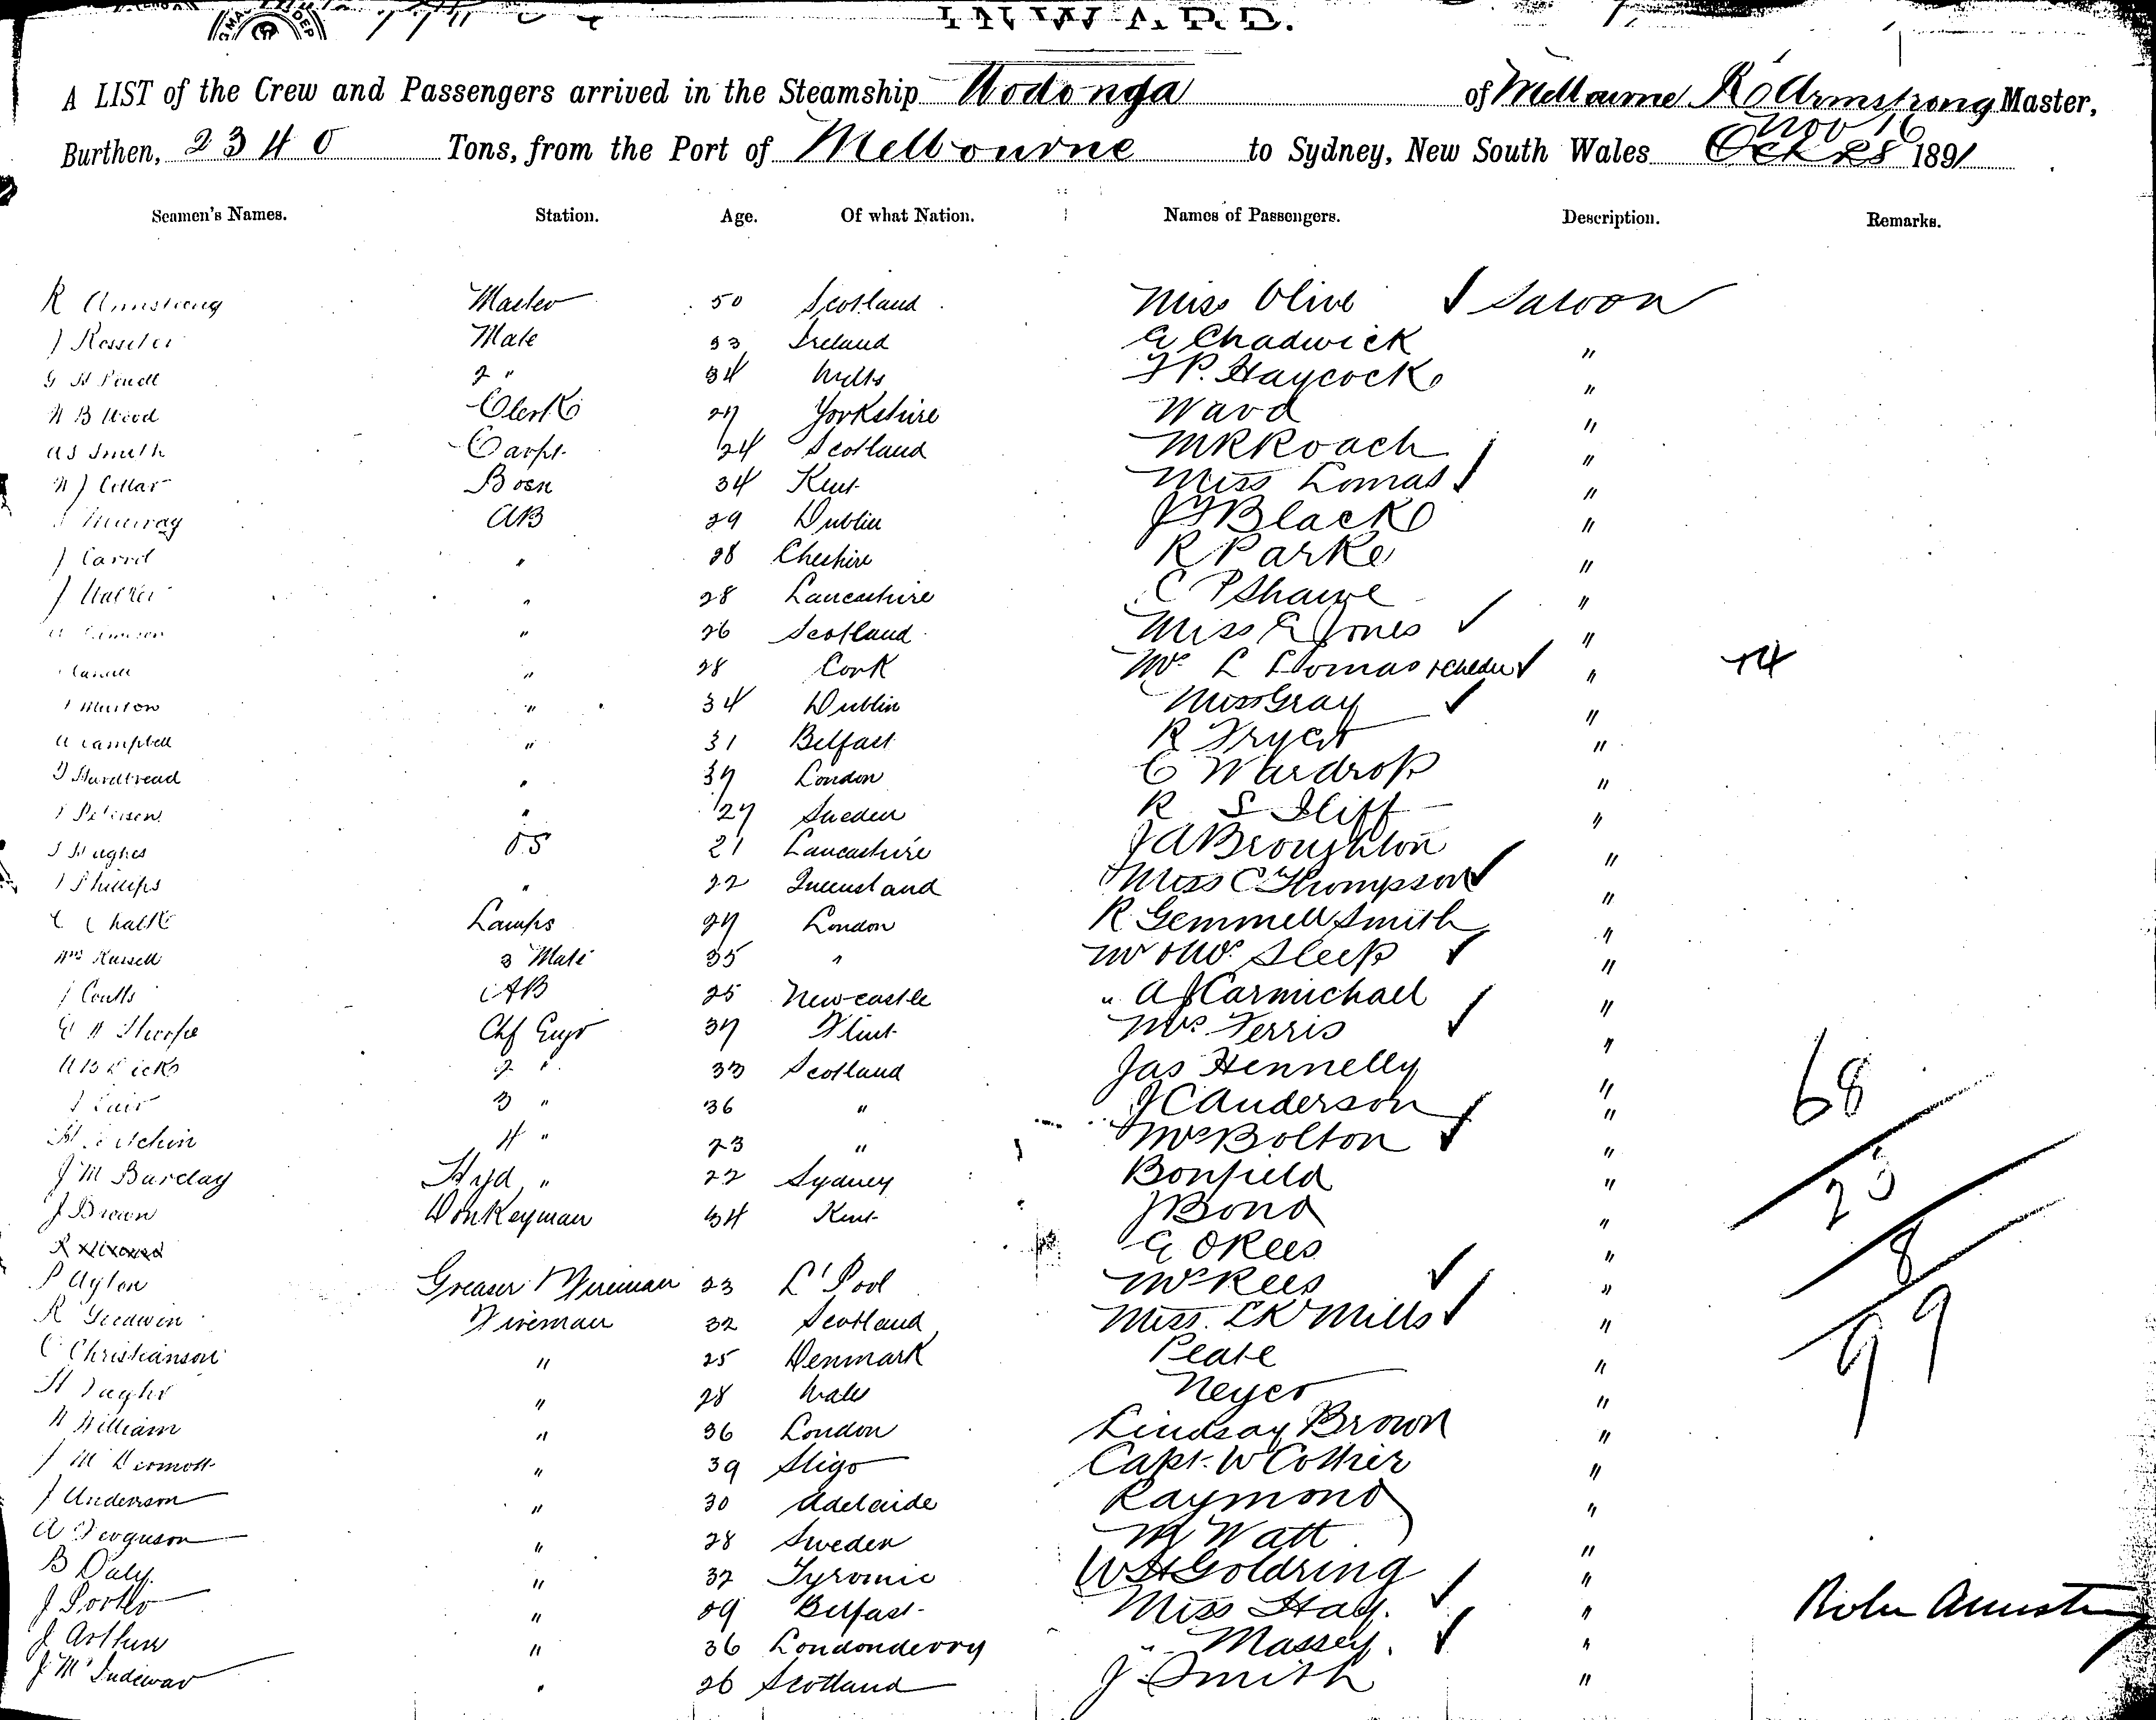 INWARD.
A LIST of the Crew and Passengers arrived in the Steamship Wodonga of Melbourne R Armstrong Master,
Burthen, 2340 Tons, from the Port of Melbourne to Sydney, New South Wales Nov 16 Oct 28 1891
Seamen's Names. Station. Age. Of what Nation. Names of Passengers. Description. Remarks.
R Armstrong Master 50 Scotland Miss Olive ✓ Saloon
J Rosseter Mate 33 Ireland E Chadwick "
G H Penell 2 " 34 Wilts F P. Haycock "
W B Wood Clerk 27 Yorkshire Ward "
A S Smith Carpr 24 Scotland M R Roach "
W J Cellar Bosn 34 Kent Miss Lomas ✓ "
Murray AB 29 Dublin J F Black "
J Carrol " 28 Cheshire R Parke "
J Walker " 28 Lancashire C P Shawe "
" 26 Scotland Miss E Jones ✓ "
" 28 Cork Mrs L Lomas + children ✓ " +4
Murton " 34 Dublin Miss Gray ✓ "
A Campbell " 31 Belfast R Fryer "
J Hardbread " 37 London C Wardrop "
J Peterson " 27 Sweden R S Iliff "
J Hughes O.S 21 Lancashire J A Broughton "
J Phillips " 22 Queensland Miss C Thompson ✓ "
C Chalk Lamps 27 London R Gemmell Smith "
Wm Russell 3 Mate 35 " Mr & Mrs Sleep ✓ "
J Coutts AB 25 Newcastle " A J Carmichael "
E H Thorpe Chf Engr 37 Flint Mrs Ferris ✓ "
A B Dicks 2 " 33 Scotland Jas Hennelly "
J Lair 3 " 36 " J C Anderson "
4 " 23 " Mrs Bolton ✓ "
J M Barclay Hyd " 22 Sydney Bonfield "
J Brown Donkeyman 34 Kent J Bond "
E O Rees "
P Ayton Greaser & Fireman 23 L'Pool Mrs Rees ✓ "
R Goodwin Fireman 32 Scotland Miss. L K Mills ✓ "
C Christianson " 25 Denmark Peate "
H Taylor " 28 Wales Neyer "
W William " 36 London Lindsay Brown "
J McDermott " 39 Sligo Capt W Collier "
J Anderson " 30 Adelaide Raymond "
A Ferguson " 28 Sweden M Watt "
B Daly " 32 Tyrone W H Goldring "
J Porter " 29 Belfast Miss Hay. ✓ "
J Arthur " 36 Londonderry " Massey. ✓ "
J McIndewar " 26 Scotland J Smith "
68
23
8
99
Robr Armstrong